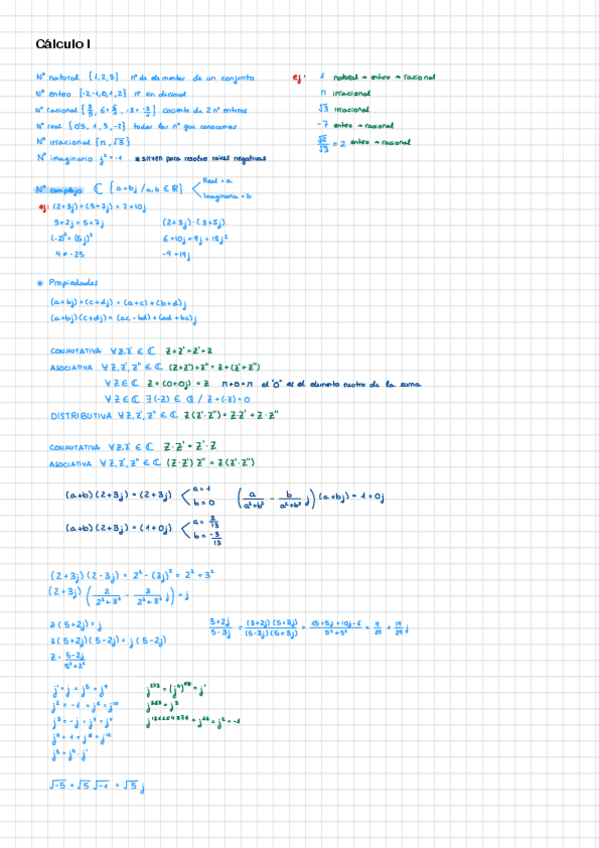 Cálculo I
Nº natural {1,2,3} nº de elementos de un conjunto
Nº entero {-2,-1,0,1,2} nº sin decimal
Nº racional cociente de 2 nº enteros
Nº real {0'5, 1, 3, -2} todos los nº que conocemos
Nº irracional {π, √3}
Nº imaginario j² = -1 * sirven para resolver raíces negativas
ej: 1 natural → entero → racional
π irracional
√3 irracional
-7 entero → racional
= 2 entero → racional
Nº complejo ℂ {a+bj / a,b ∈ ℝ} Real = a
Imaginaria = b
ej: (2+3j)+(5+7j) = 7+10j
(2+3j)·(3+5j)
6+10j+9j+15j²
-9+19j
4 ≠ -25
Propiedades
(a+bj)+(c+dj) = (a+c)+(b+d)j
(a+bj)(c+dj) = (ac-bd)+(ad+bc)j
CONMUTATIVA ∀ z,z' ∈ ℂ z+z' = z'+z
ASOCIATIVA ∀ z,z',z'' ∈ ℂ (z+z')+z'' = z+(z'+z'')
∀ z ∈ ℂ z+(0+0j) = z n+0=n el "0" es el elemento neutro de la suma
∀ z ∈ ℂ ∃ (-z) ∈ ℂ / z+(-z) = 0
DISTRIBUTIVA ∀ z,z',z'' ∈ ℂ z(z'+z'') = z·z' + z·z''
CONMUTATIVA ∀ z,z' ∈ ℂ z·z' = z'·z
ASOCIATIVA ∀ z,z',z'' ∈ ℂ (z·z')z'' = z(z'·z'')
(a+b)(2+3j) = (2+3j) a=1
b=0
(a/(a²+b²) - b/(a²+b²) j)(a+bj) = 1+0j
(a+b)(2+3j) = (1+0j) a = 2/13
b = -3/13
(2+3j)(2-3j) = 2²-(3j)² = 2²+3²
(2+3j)(2/(2²+3²) - 3/(2²+3²) j) = j
z(5+2j) = j
z(5+2j)(5-2j) = j(5-2j)
z = (5-2j)/(5²+2²)
(3+2j)/(5-3j) = (3+2j)(5+3j)/(5-3j)(5+3j) = (15+9j+10j-6)/(5²+3²)
j¹ = j = j⁵ = j⁹
j² = -1 = j⁶ = j¹⁰
j³ = -j = j⁷
√-5 = √5 √-1 = √5 j